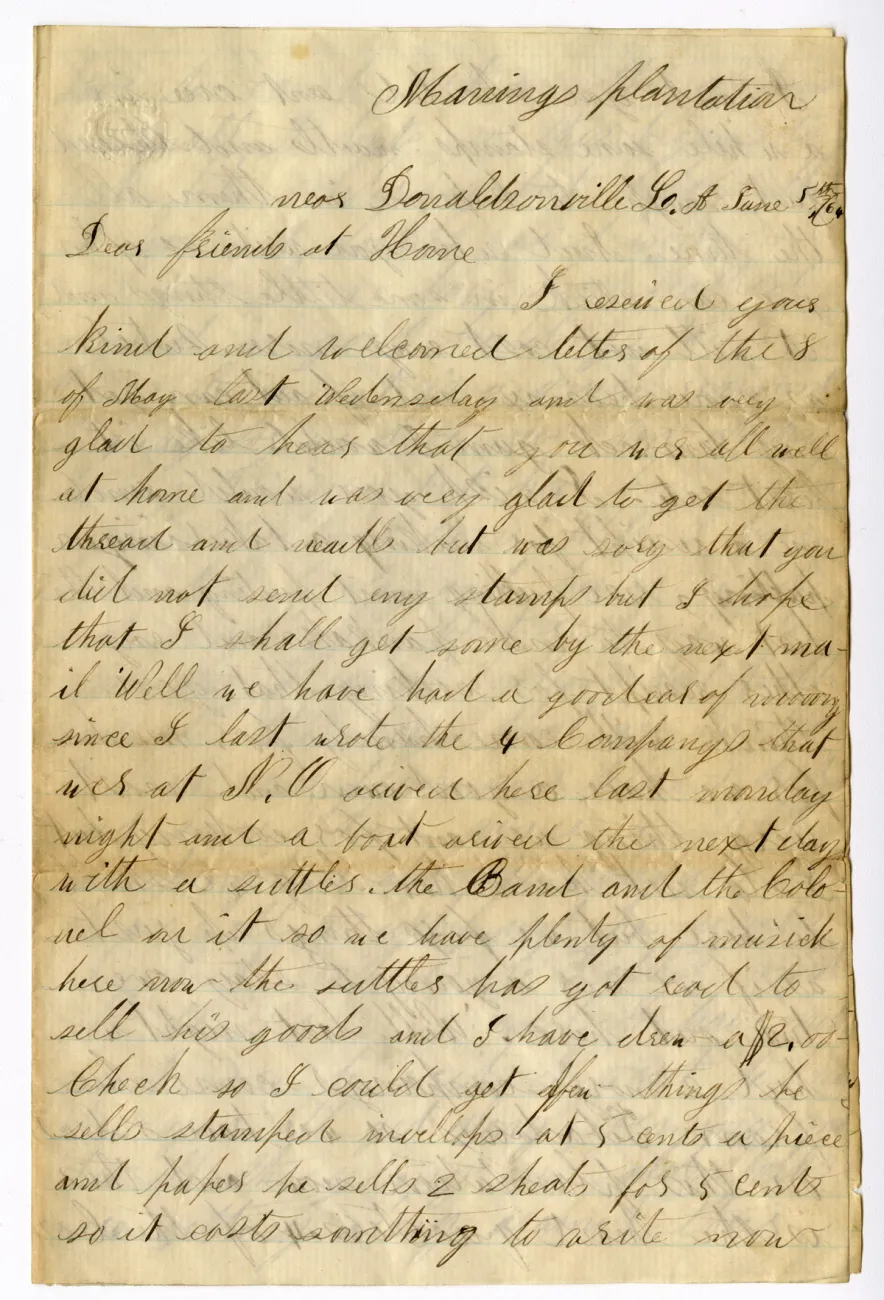 Mannings plantation
near Donaldsonville Lo. A June 5th /64
Dear friends at Home
I reseived your
kind and welcomed letter of the 8
of May last Wedensday and was very
glad to hear that you wer all well
at home and was very glad to get the
thread and neadls but was sory that you
did not send eny stamps but I hope
that I shall get some by the next ma-
il Well we have had a good ear of
since I last wrote the 4 Companys that
wer at N. O arived here last monday
night and a boat arived the next day
with a suttler. the Band and the Colo-
nel on it so we have plenty of musick
here now the suttler has got read to
sell his goods and I have drew a $2.00-
Check so I could get a few things he
sells stamped invellops at 5 cents a piece
and paper he sells 2 sheats for 5 cents
so it costs somthiing to write now